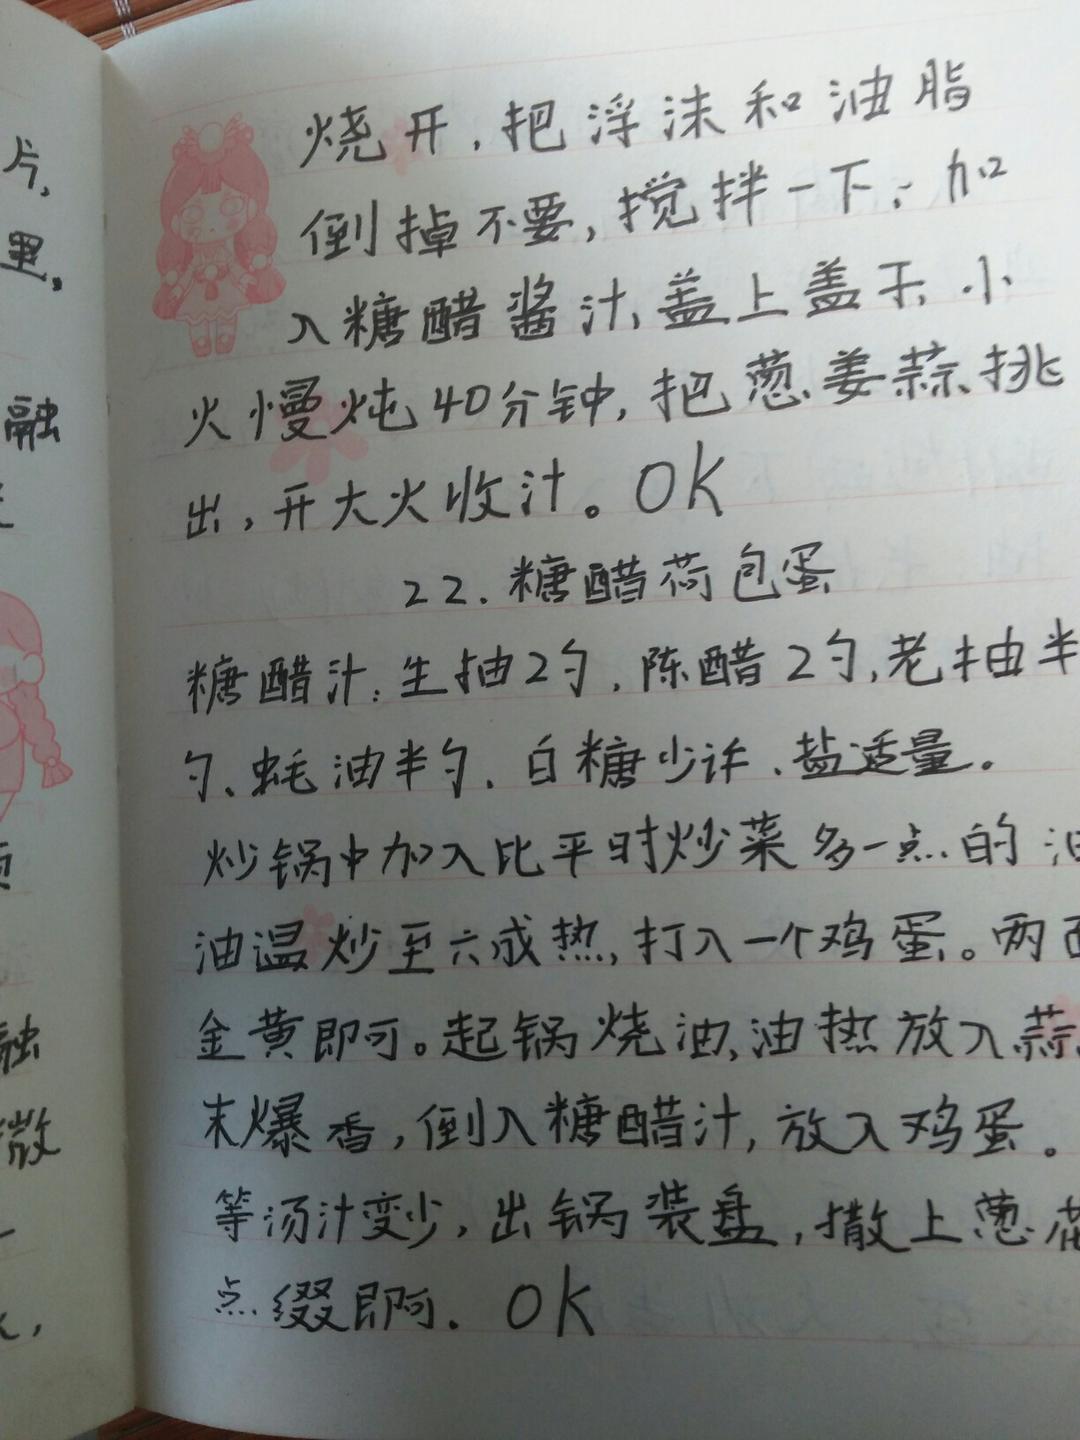 片,
里,
融
融
微
烧开,把浮沫和油脂
倒掉不要,搅拌一下,加
入糖醋酱汁,盖上盖子,小
火慢炖40分钟,把葱、姜蒜、挑
出,开大火收汁。OK
22.糖醋荷包蛋
糖醋汁:生抽2勺,陈醋2勺,老抽半
勺、蚝油半勺、白糖少许、盐适量。
炒锅中加入比平时炒菜多一点的油
油温炒至六成热,打入一个鸡蛋。两面
金黄即可。起锅烧油,油热放入蒜
末爆香,倒入糖醋汁,放入鸡蛋。
等汤汁变少,出锅装盘,撒上葱花
点缀即可.OK